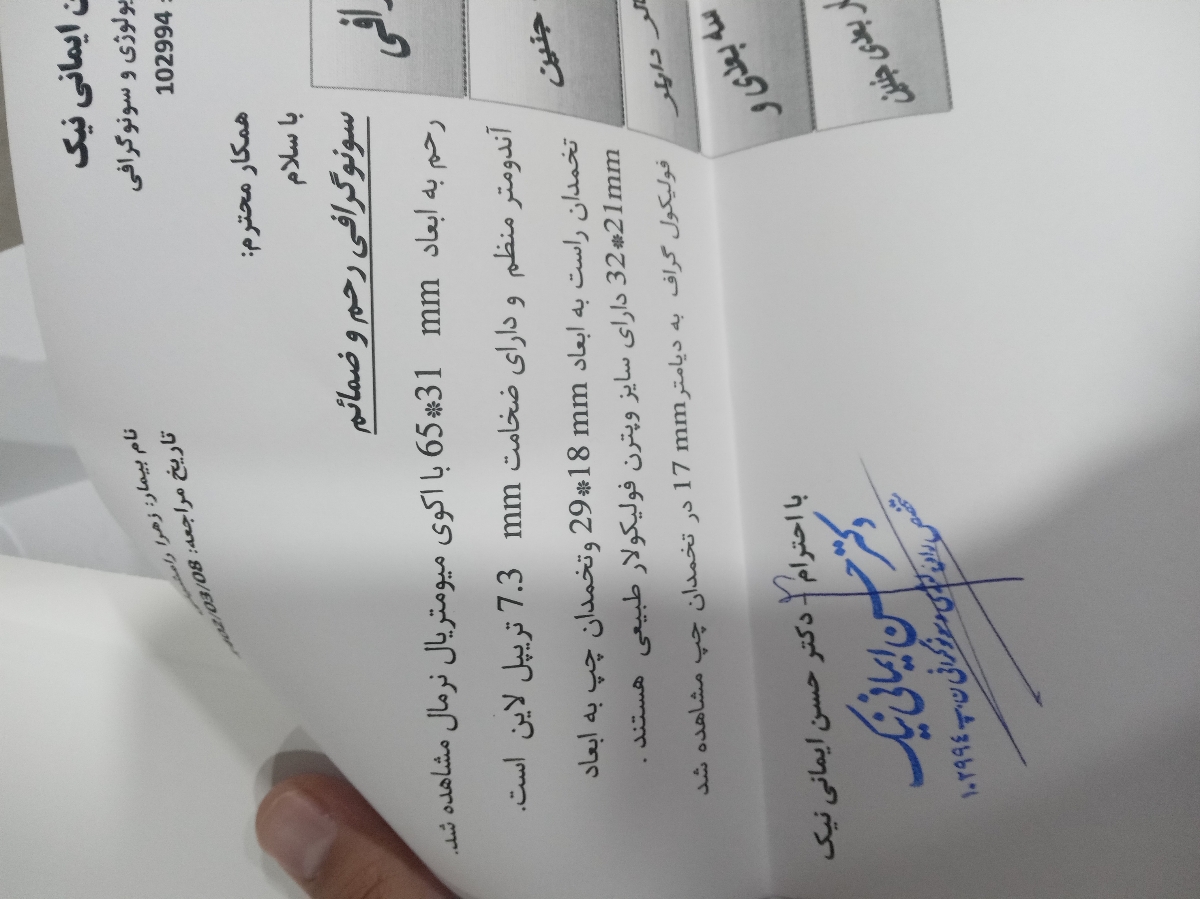 ن ایمانی نیک
یولوژی و سونوگرافی
: 102994
نام بیمار: زهرا
تاریخ مراجعه: 03/08
همکار محترم:
با سلام
سونوگرافی رحم و ضمائم
رحم به ابعاد 65*31 mm با اکوی میومتریال نرمال مشاهده شد.
آندومتر منظم و دارای ضخامت 7.3 mm تریپل لاین است.
تخمدان راست به ابعاد 29*18 mm وتخمدان چپ به ابعاد
32*21mm دارای سایز وپترن فولیکولار طبیعی هستند .
فولیکول گراف به دیامتر 17 mm در تخمدان چپ مشاهده شد
با احترام – دکتر حسن ایمانی نیک
دکتر حسن ایمانی نیک
ن.پ ١٠٢٩٩٤
رافی
جنین
سه بعدی و
بعدی جنین